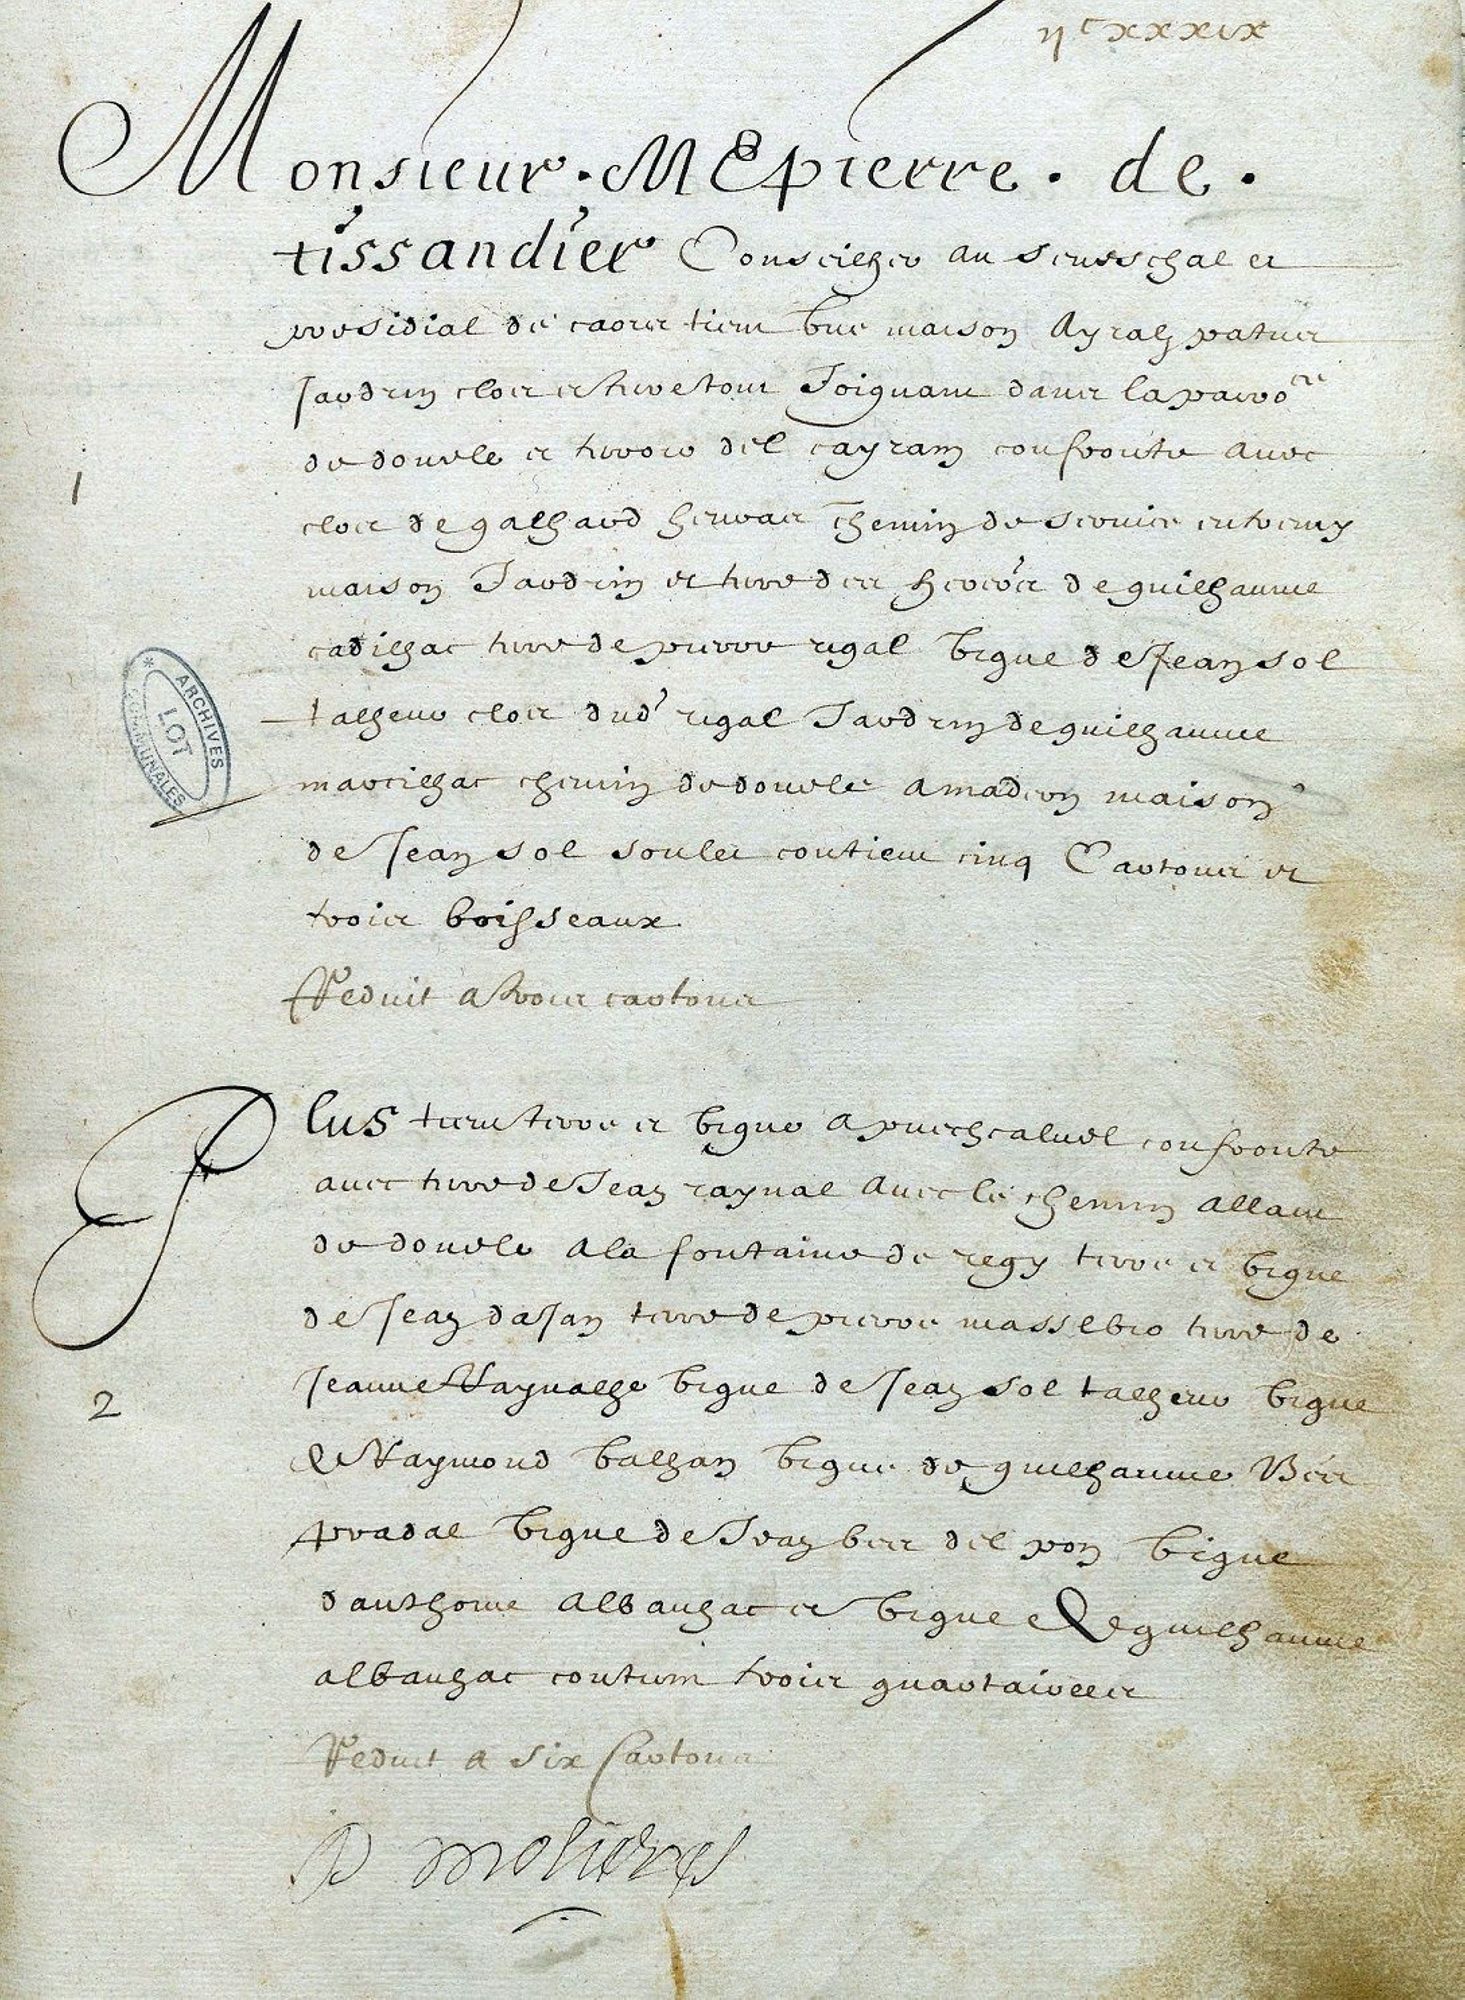 ijᶜ xxxix
Monsieur . Mᴱ pierre . de .
tissandier Conseilher au seneschal et
presidial de caors tient vne maison Ayral patus
Jardrin clos et terre tout Joignant dans la parro^ce
de douele et terroir del cayram confronte avec
1
clos de galhard hervais chemin de service entremy
maison Jardrin et terre des hereo's de guilhaume
cadilhac terre de pierre rigal vigne de Jean sol
talheur clos dud' rigal Jardrin de guilhaume
marcilhac chemin de douele a mader maison
de Jean sol soulet contient cinq Cartons et
trois boisseaux
Reduit a trois cartons
ARCHIVES COMMUNALES
LOT
Plus tient terre et vigne a puechcalvel confronte
avec terre de Jean raynal avec le chemin allant
de douele a la fontaine de regy terre et vigne
de Jean daJan terre de pierre massebro terre de
Jeanne Raynalhe vigne de Jean sol talheur vigne
2
de Raymond valhan vigne de guilhaume Bes
pradal vigne de Jean bes del pon vigne
d'anthoine albanhac et vigne de guilhaume
albanhac contient trois quartairees
Reduit a six Cartons
P molieres